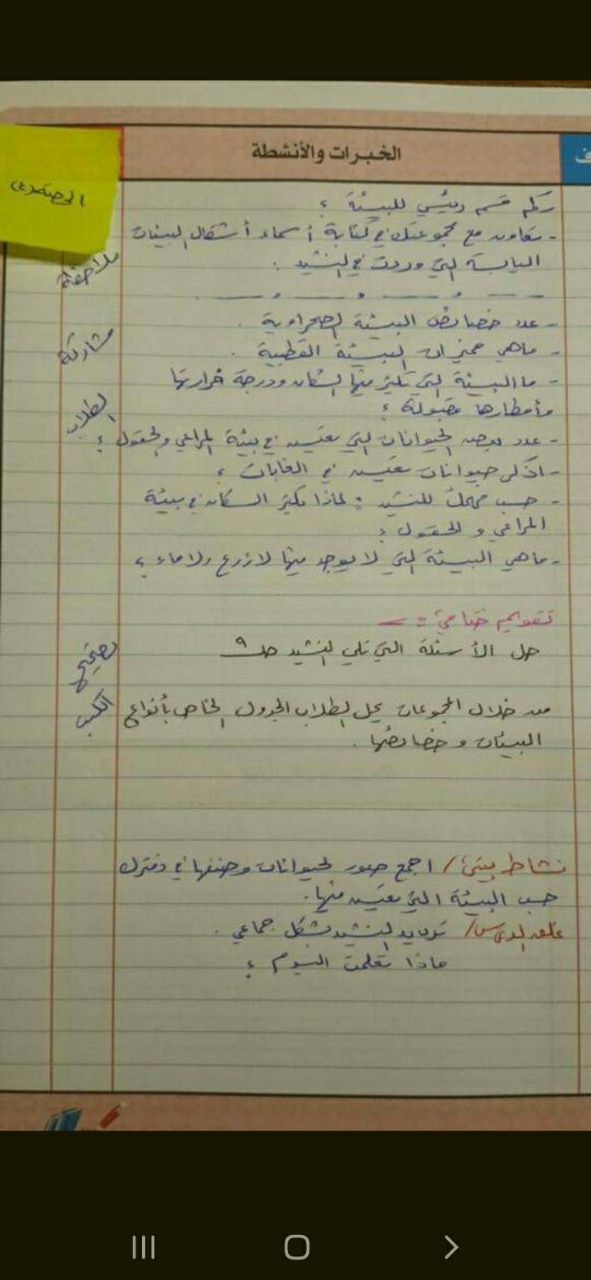 ف
الخبرات والأنشطة
لكم قسم رئيسي للبيئة ؟
- تعاون مع مجموعتك في كتابة أسماء أشكال البيئات
اليابسة التي وردت في النشيد .
- عدد خصائص البيئة الصحراوية .
- ماهي مميزات البيئة القطبية .
- ما البيئة التي تكثر فيها السكان ودرجة حرارتها
وأمطارها مقبولة ؟
- عدد بعض الحيوانات التي تعيش في بيئة المراعي والحقول ؟
- اذكر حيوانات تعيش في الغابات ؟
- حسب فهمك للنشيد : لماذا تكثر السكان في بيئة
المراعي و الحقول ؟
- ماهي البيئة التي لا يوجد فيها لا زرع ولا ماء ؟
تقويم ختامي :-
حل الأسئلة التي تلي النشيد صـ ٩
من خلال المجموعات يحل الطلاب الجدول الخاص بأنواع
البيئات و خصائصها .
نشاط بيتي / اجمع صور لحيوانات وصنفها في دفترك
حسب البيئة التي تعيش فيها .
غلق الدرس / ترديد النشيد بشكل جماعي .
ماذا تعلمت اليوم ؟
ملاحظة
مشاركة
الطلاب
تصحيح
الكتب